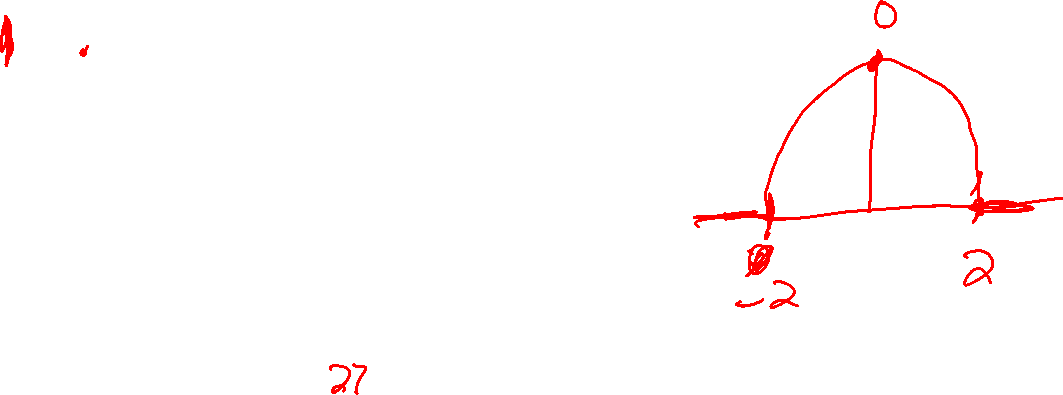 0
-2 2
27